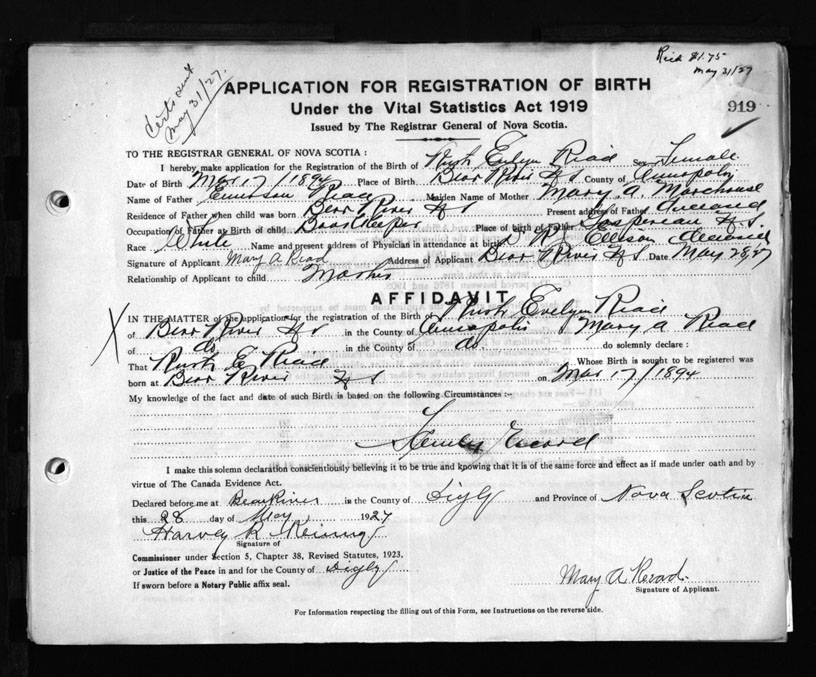 Certs sent
May 31/27.
Recd $1.75
May 31/27
APPLICATION FOR REGISTRATION OF BIRTH
Under the Vital Statistics Act 1919
919
Issued by The Registrar General of Nova Scotia.
TO THE REGISTRAR GENERAL OF NOVA SCOTIA :
I hereby make application for the Registration of the Birth of Ruth Evelyn Read Sex Female
Date of Birth Mar 17/1894 Place of Birth Bear River NS County of Annapolis
Name of Father Read Maiden Name of Mother Mary A. Morehouse
Residence of Father when child was born Bear River NS Present address of Father Deceased
Occupation of Father at Birth of child Book Keeper Place of birth of Father Gaspereau N.S.
Race White Name and present address of Physician in attendance at birth Dr R J Ellison Deceased
Signature of Applicant Mary A Read Address of Applicant Bear River NS Date May 28/27
Relationship of Applicant to child Mother
AFFIDAVIT
IN THE MATTER of the application for the registration of the Birth of Ruth Evelyn Read
of Bear River NS in the County of Annapolis Mary A Read
of do in the County of do. do solemnly declare :
That Ruth E Read Whose Birth is sought to be registered was
born at Bear River NS on Mar 17/1894
My knowledge of the fact and date of such Birth is based on the following Circumstances :-
Family Record
I make this solemn declaration conscientiously believing it to be true and knowing that it is of the same force and effect as if made under oath and by
virtue of The Canada Evidence Act.
Declared before me at Bear River in the County of Digby and Province of Nova Scotia
this 28 day of May 1927
Harvey R
Signature of
Commissioner under Section 5, Chapter 38, Revised Statutes, 1923,
or Justice of the Peace in and for the County of Digby
If sworn before a Notary Public affix seal.
Mary A Read.
Signature of Applicant.
For Information respecting the filling out of this Form, see Instructions on the reverse side.